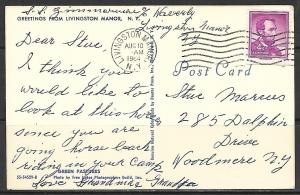 S. S. Zimmerman
Waverly
GREETINGS FROM LIVINGSTON MANOR, N. Y.
Livingston Manor
N.Y
LIVINGSTON MANOR
AUG 10
AM
1964
N.Y.
4¢
Dear Stue,
I think you
would like to
look at this horse
since you are
going horse back
riding in your camp
Love Grandma & Grandpa
GREEN PASTURES
Post Card
Stue Marcus
285 Dolphin
Drive
Woodmere N.Y